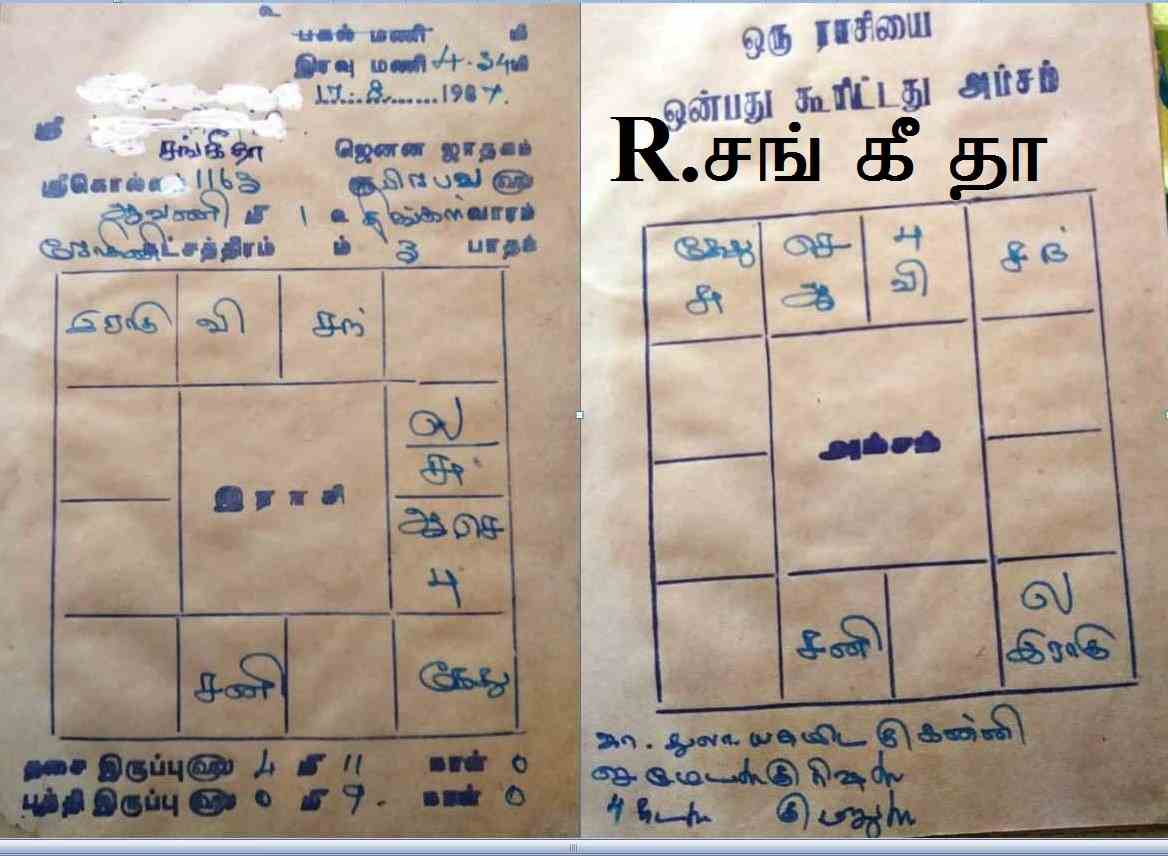 பகல் மணி மி
இரவு மணி 4.34 மி
17..8......1987.
ஸ்ரீ
சங்கீதா ஜெனன ஜாதகம்
ஸ்ரீகொல்லம் 1163
ஆவணி மீ 1 உ திங்கள் வாரம்
நட்சத்திரம் ம் 3 பாதம்
இராகு வி சந்
ல
சு
இராசி
ஆ செ
பு
சனி கேது
தசை இருப்பு ஹு 4 மீ 11 நாள் 0
புத்தி இருப்பு ஹு 0 மீ 9. நாள் 0
ஒரு ராசியை
ஒன்பது கூரிட்டது அம்சம்
R.சங் கீ தா
கேது செ பு சந்
சு ஆ வி
அம்சம்
ல
சனி இராகு